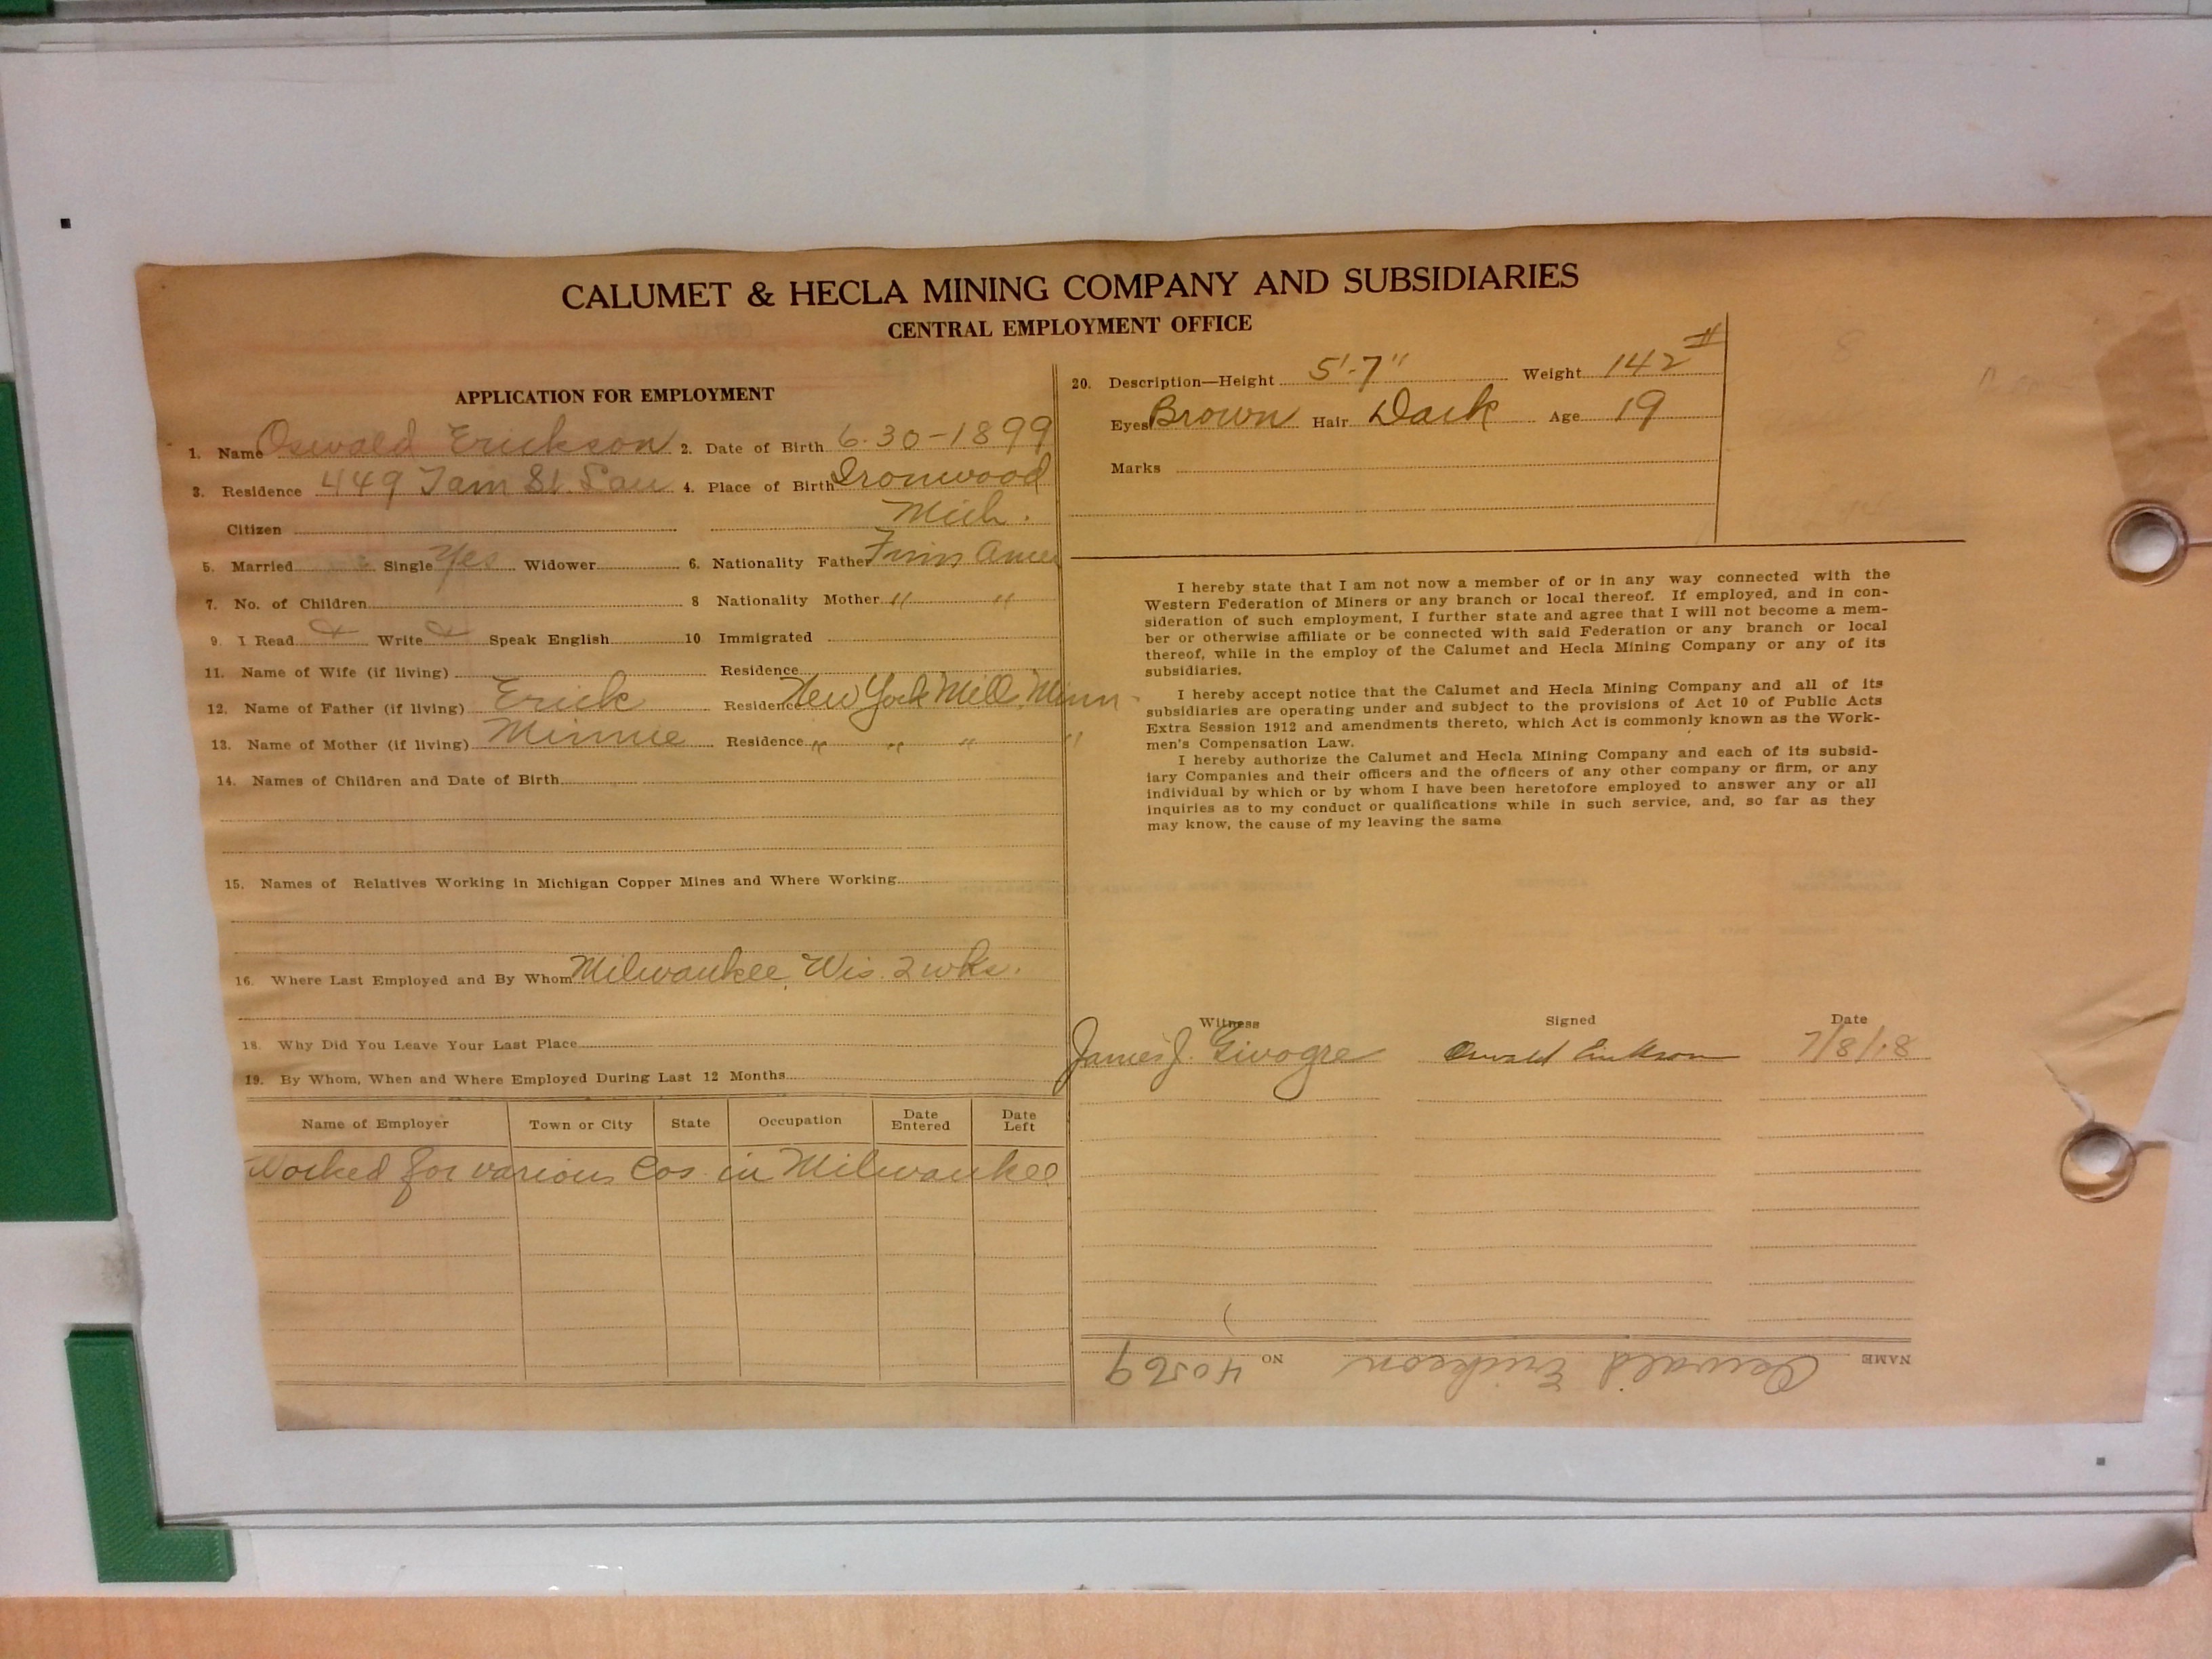 CALUMET & HECLA MINING COMPANY AND SUBSIDIARIES
CENTRAL EMPLOYMENT OFFICE
APPLICATION FOR EMPLOYMENT
1. Name Oswald Erickson 2. Date of Birth 6-30-1899
3. Residence 449 Tam St. Lau 4. Place of Birth Ironwood
Citizen Mich.
5. Married Single Yes Widower 6. Nationality Father Finn Amer
7. No. of Children 8 Nationality Mother " "
9. I Read Write Speak English 10 Immigrated
11. Name of Wife (if living) Residence
12. Name of Father (if living) Erick Residence New York Mill Minn
13. Name of Mother (if living) Minnie Residence " " " "
14. Names of Children and Date of Birth
15. Names of Relatives Working in Michigan Copper Mines and Where Working
16. Where Last Employed and By Whom Milwaukee, Wis. 2 wks.
18. Why Did You Leave Your Last Place
19. By Whom, When and Where Employed During Last 12 Months
Name of Employer Town or City State Occupation Date Entered Date Left
Worked for various Cos in Milwaukee
20. Description—Height 5'-7" Weight 142 #
Eyes Brown Hair Dark Age 19
Marks
I hereby state that I am not now a member of or in any way connected with the
Western Federation of Miners or any branch or local thereof. If employed, and in con-
sideration of such employment, I further state and agree that I will not become a mem-
ber or otherwise affiliate or be connected with said Federation or any branch or local
thereof, while in the employ of the Calumet and Hecla Mining Company or any of its
subsidiaries.
I hereby accept notice that the Calumet and Hecla Mining Company and all of its
subsidiaries are operating under and subject to the provisions of Act 10 of Public Acts
Extra Session 1912 and amendments thereto, which Act is commonly known as the Work-
men's Compensation Law.
I hereby authorize the Calumet and Hecla Mining Company and each of its subsid-
iary Companies and their officers and the officers of any other company or firm, or any
individual by which or by whom I have been heretofore employed to answer any or all
inquiries as to my conduct or qualifications while in such service, and, so far as they
may know, the cause of my leaving the same
Witness Signed Date
James J. Oswald Erickson 7/8/18
NAME Oswald Erickson NO 40569